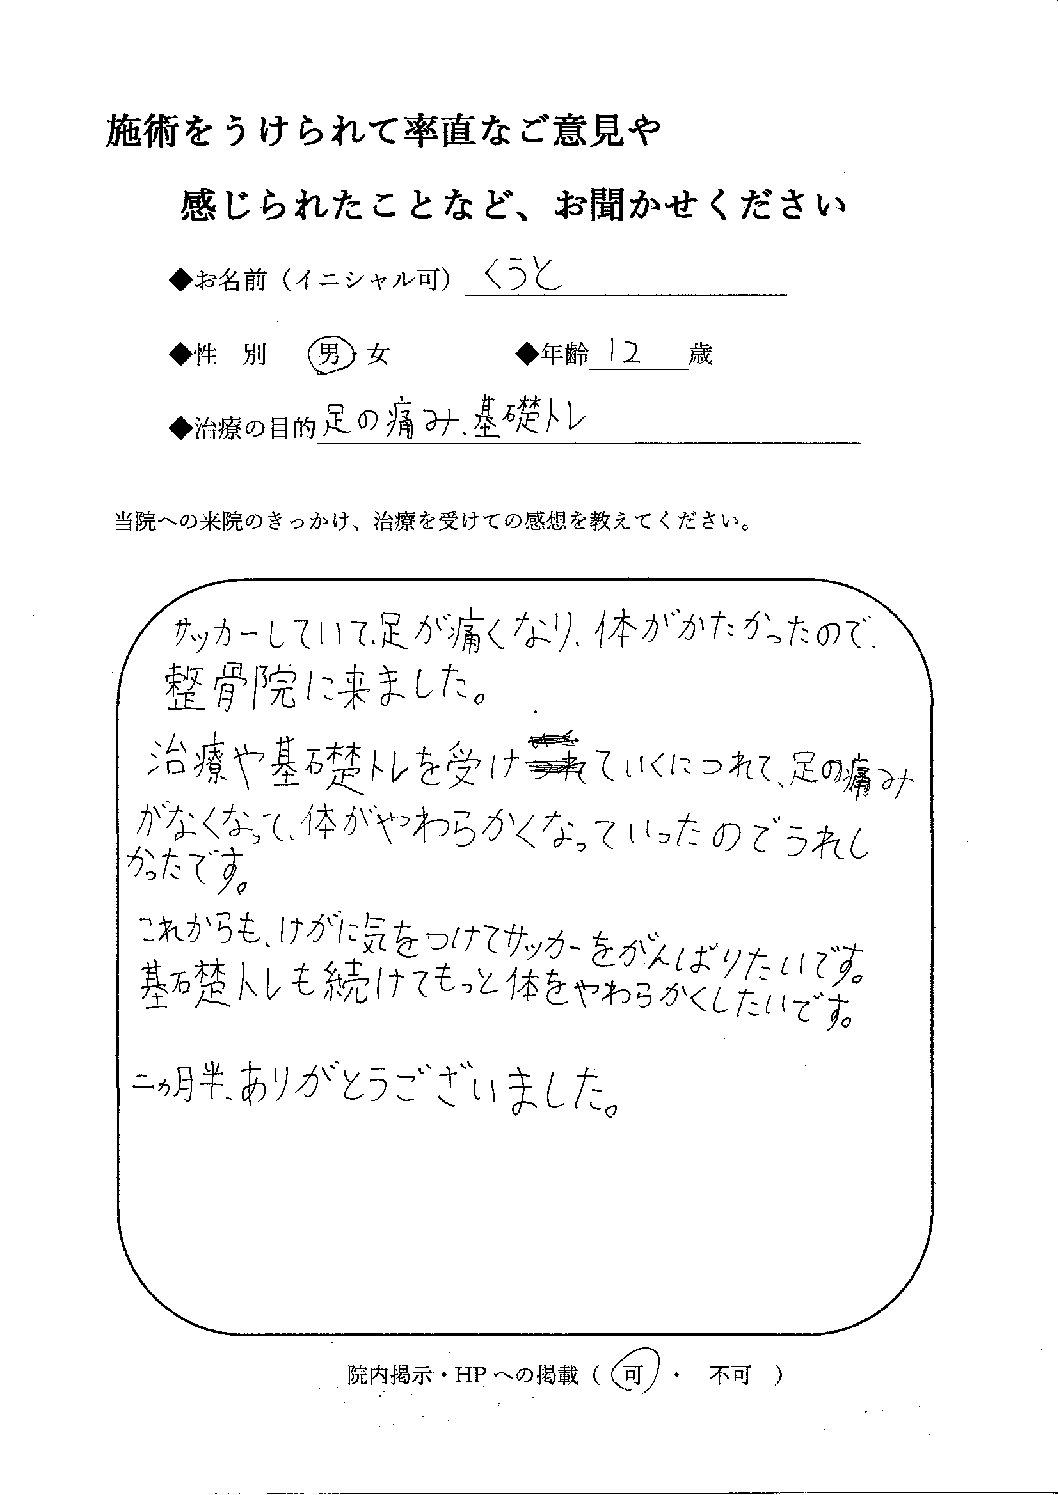 施術をうけられて率直なご意見や
感じられたことなど、お聞かせください
◆お名前（イニシャル可） くうと
◆性 別 男 女 ◆年齢 12 歳
◆治療の目的 足の痛み、基礎トレ
当院への来院のきっかけ、治療を受けての感想を教えてください。
サッカーしていて、足が痛くなり、体がかたかったので、
整骨院に来ました。
治療や基礎トレを受けていくにつれて、足の痛み
がなくなって、体がやわらかくなっていったのでうれし
かったです。
これからも、けがに気をつけてサッカーをがんばりたいです。
基礎トレも続けてもっと体をやわらかくしたいです。
二ヵ月半、ありがとうございました。
院内掲示・HPへの掲載（ 可 ・ 不可 ）